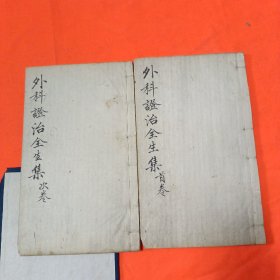 外科證治全生集首卷
外科證治全生集次卷